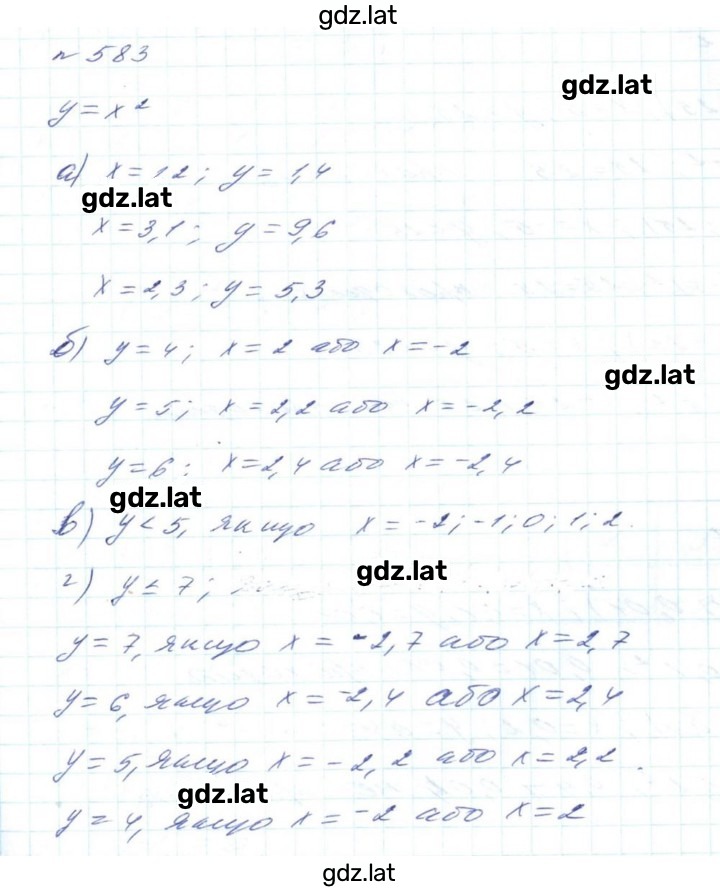 gdz.lat
№ 583
gdz.lat
y = x²
а) x = 12; y = 1,4
gdz.lat
x = 3,1; y = 9,6
x = 2,3; y = 5,3
б) y = 4; x = 2 або x = -2
gdz.lat
y = 5; x = 2,2 або x = -2,2
y = 6: x = 2,4 або x = -2,4
gdz.lat
в) y < 5, якщо x = -2; -1; 0; 1; 2.
gdz.lat
г) y ≤ 7;
y = 7, якщо x = -2,7 або x = 2,7
y = 6, якщо x = -2,4 або x = 2,4
y = 5, якщо x = -2,2 або x = 2,2.
gdz.lat
y = 4, якщо x = -2 або x = 2
gdz.lat